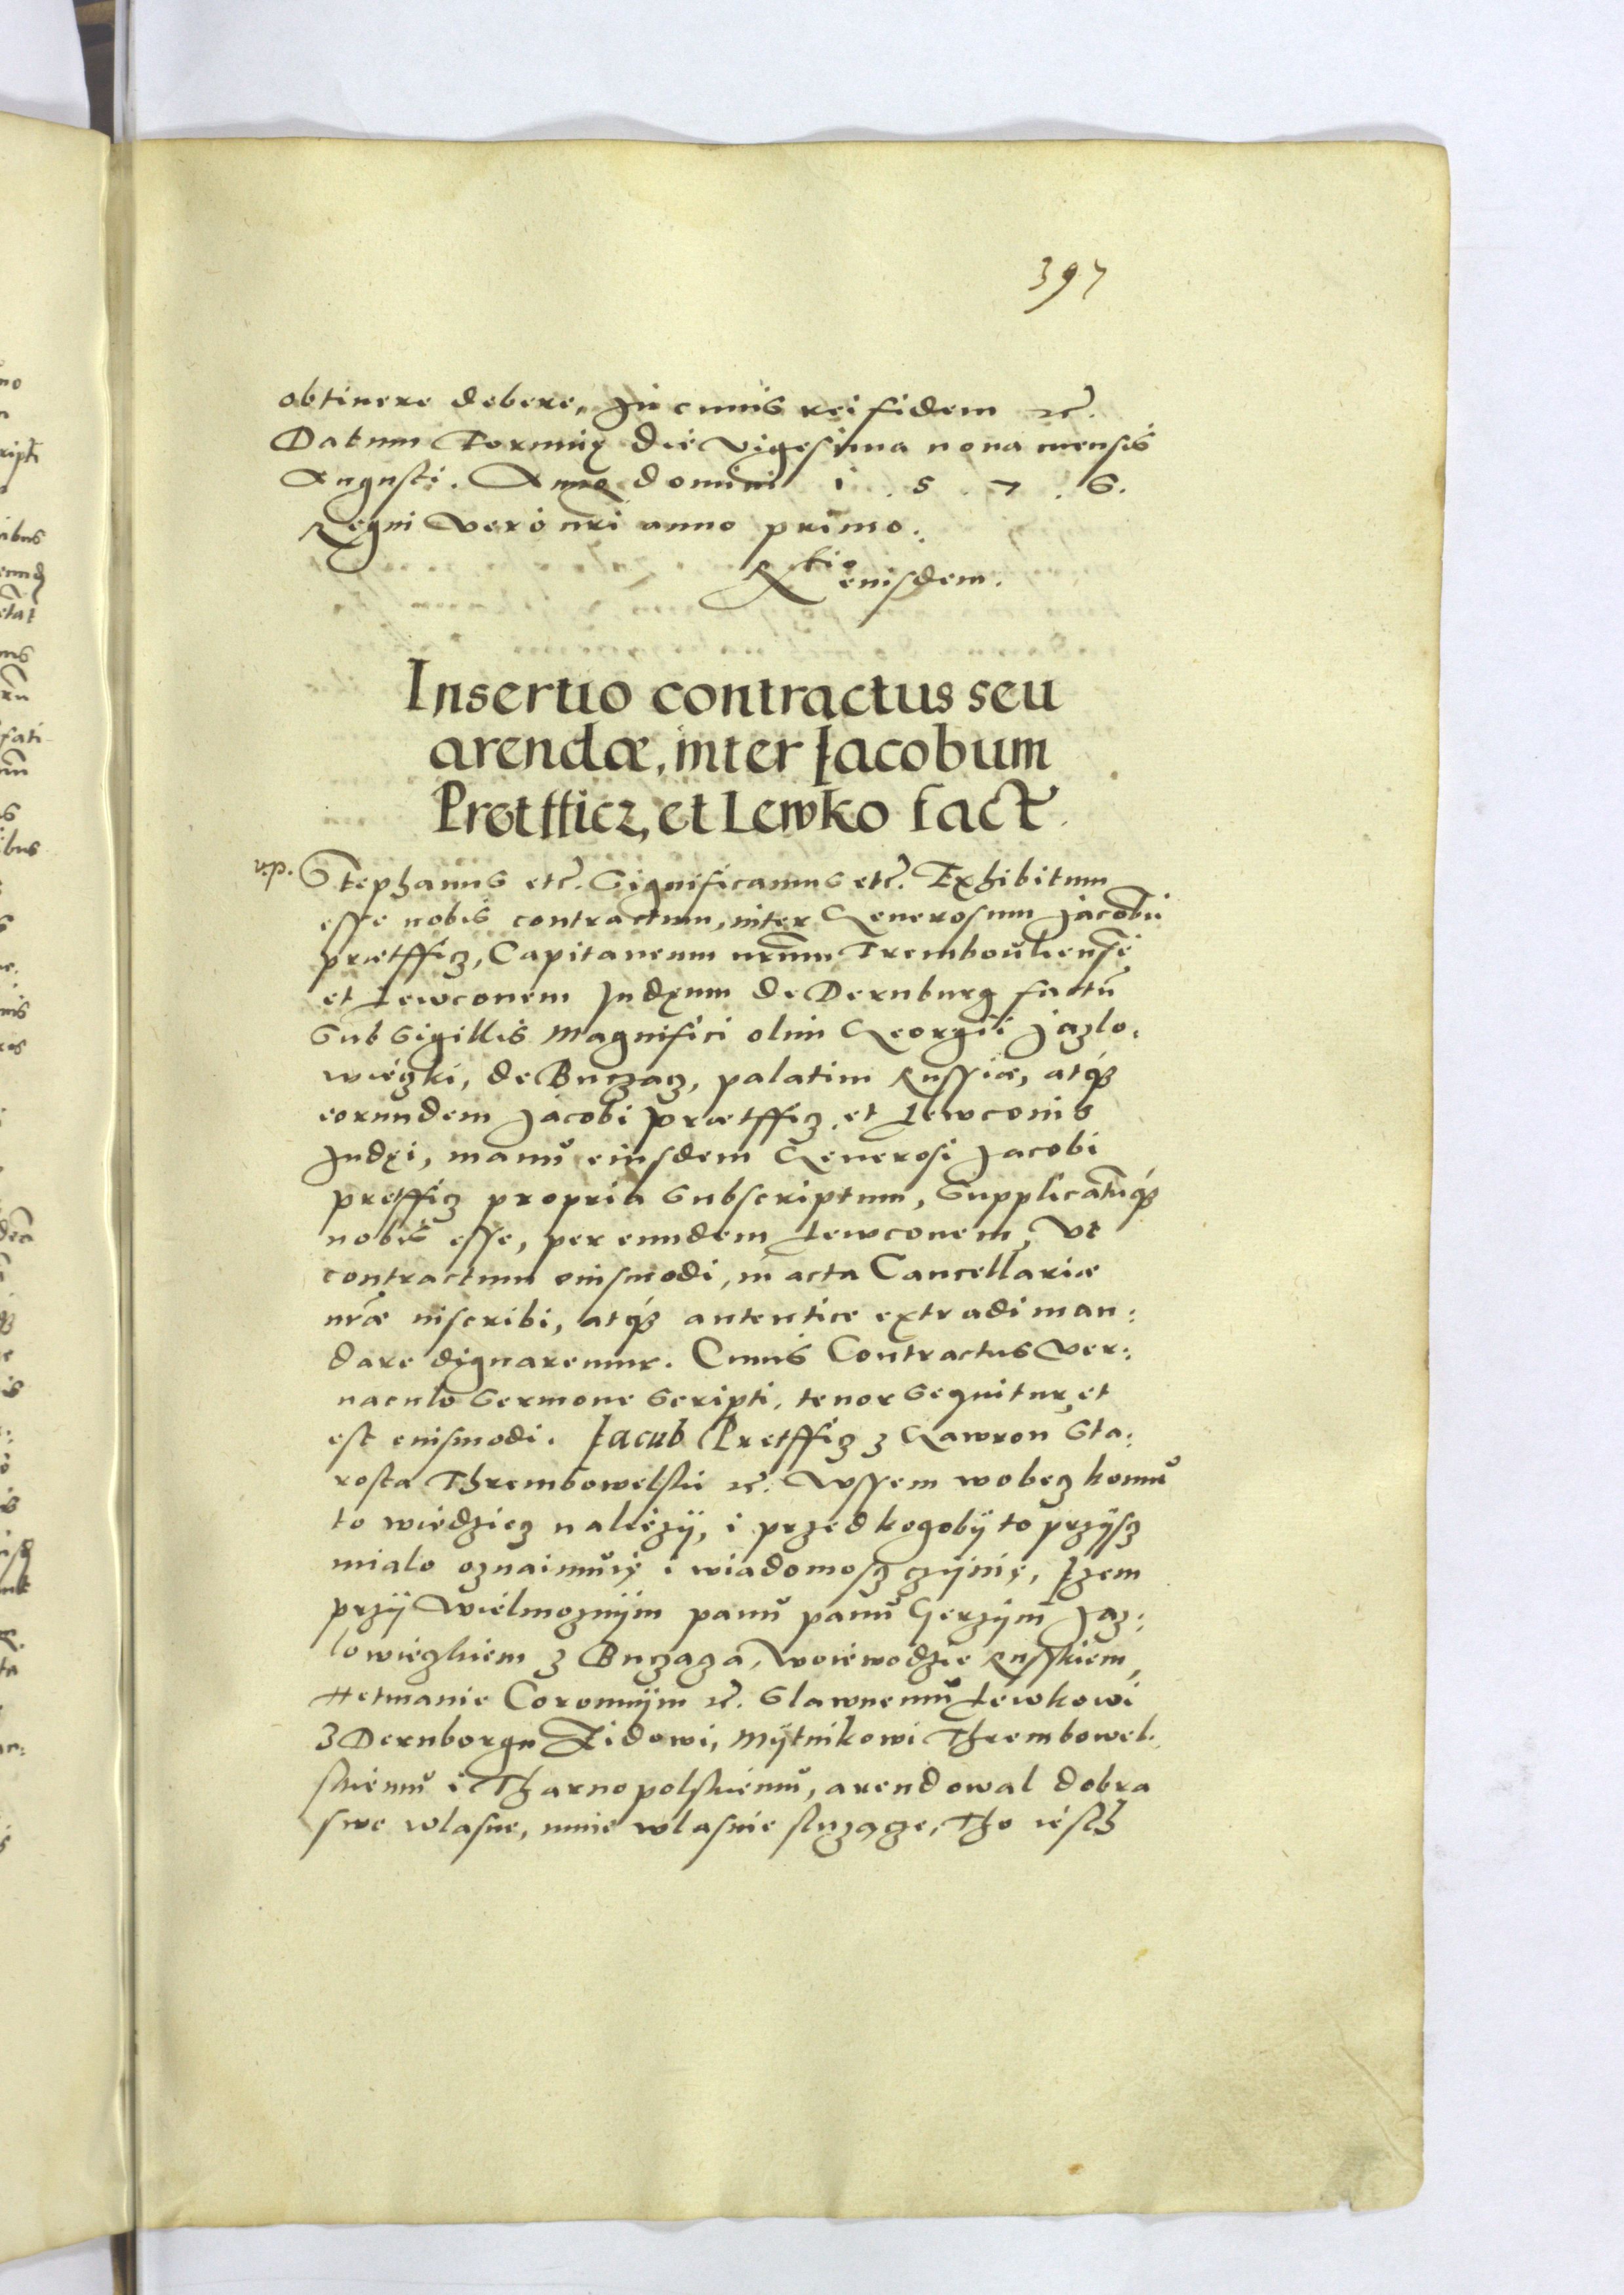 397
obtinere debere, In cuius rei fidem etc.
Datum Toruniæ die Vigesima nona mensis
Augusti. Anno domini 1 . 5 . 7 . 6 .
Regni vero nri anno primo.
Rtio eiusdem.
Insertio contractus seu
arendæ, inter Jacobum
Pretfficz, et Lewko fact
v.p. Stephanus etc. Significamus etc. Exhibitum
esse nobis contractum, inter Generosum Jacobũ
prætfficz, Capitaneum nrũm Trembouliensẽ
et Lewconem Judæum de Dernburg factũ
Sub Sigillis Magnifici olim Georgii Jazlo:
wieczki, de Buczacz, palatini Russiæ, atq3
eorundem Jacobi prætfficz, et Lewconis
Judęi, manu eiusdem Generosi Jacobi
pretfficz propria Subscriptum, Supplicatũq3
nobis esse, per eundem Lewconem, Vt
contractum eiusmodi, in acta Cancellariæ
nræ inscribi, atq3 autentice extradi man:
dare dignaremur. Cuius Contractus Ver:
naculo Sermone Scripti, tenor Sequitur, et
est eiusmodi. Jacub Pretfficz z Gawron Sta:
rosta Thrembowelski etc. Wssem wobecz komu
to wiedziecz należÿ, i przed kogobÿ to przÿscz
mialo oznaimuię i wiadomoscz czÿnię, Jzem
przÿ Wielmoznÿm panu panu Gerzÿm Jaz:
lowieczkiem z Buczacza, Woiewodzie Russkiem,
Hetmanie Coronnÿm etc. Slawnemu Lewkowi
Z Dernborgu Zidowi, Mÿtnikowi Thrembowel:
skiemu i Tharnopolskiemu, arendowal dobra
swe wlasne, mnie wlasnie sluzącze, Tho iesth